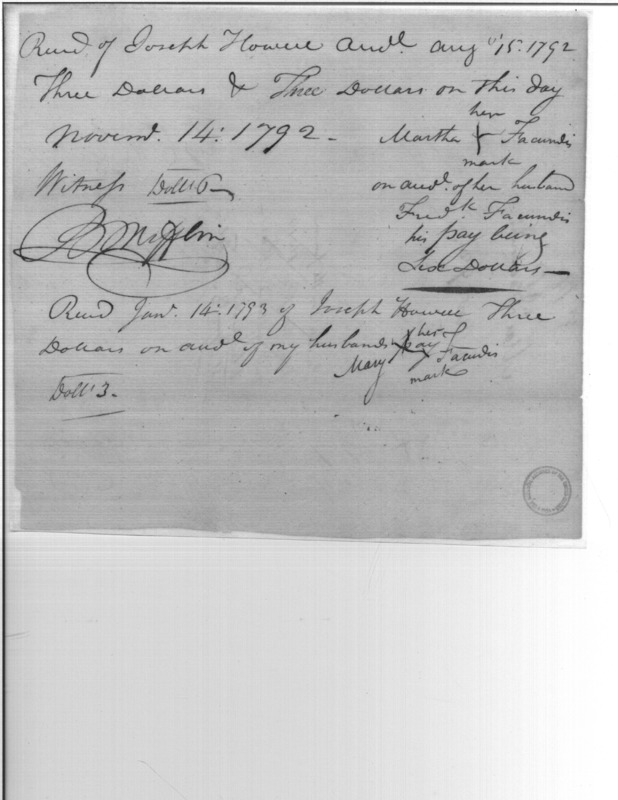 Recd. of Joseph Howell Accd. augt 15. 1792
Three Dollars & Three Dollars on this day
Novemr. 14. 1792 -
her
Martha Facundis
mark
Witness Dolls 6
on acct. of her husband
Fredk. Facundis
his pay being
Six Dollars
B Mifflin
Recd Jany. 14. 1793 of Joseph Howell Three
Dollars on acct of my husbands pay
her
Mary Facundis
mark
Dolls 3.